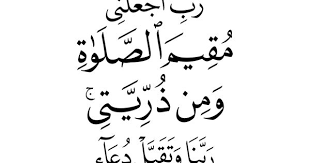 رَبِّ ٱجْعَلْنِي
مُقِيمَ ٱلصَّلَوٰةِ
وَمِن ذُرِّيَّتِي ۚ
رَبَّنَا وَتَقَبَّلْ دُعَآءِ